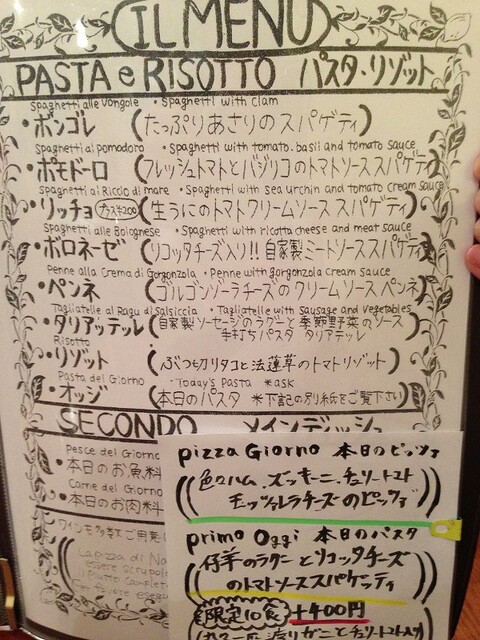 IL MENU
PASTA e RISOTTO パスタ・リゾット
Spaghetti alle Vongole ・Spaghetti with clam
・ボンゴレ (たっぷりあさりのスパゲティ)
Spaghetti al pomodoro ・Spaghetti with tomato, basil and tomato sauce
・ポモドーロ (フレッシュトマトとバジリコのトマトソーススパゲティ)
Spaghetti al Riccio di mare ・Spaghetti with sea urchin and tomato cream sauce
・リッチョ プラス¥200 (生うにのトマトクリームソーススパゲティ)
Spaghetti alle Bolognese ・Spaghetti with ricotta cheese and meat sauce
・ボロネーゼ (リコッタチーズ入り!! 自家製ミートソーススパゲティ)
Penne alla Crema di Gorgonzola ・Penne with gorgonzola cream sauce
・ペンネ (ゴルゴンゾーラチーズのクリームソースペンネ)
Tagliatelle al Ragu di Salsiccia ・Tagliatelle with Sausage and Vegetables
・タリアッテレ (自家製ソーセージのラグーと季節野菜のソース
手打ちパスタ タリアテッレ)
Risotto
・リゾット (ぶつ切りタコと法蓮草のトマトリゾット)
Pasta del Giorno ・Today's Pasta *ask
・オッジ (本日のパスタ *下記の別紙をご覧下さい)
SECONDO メインディッシュ
Pesce del Giorno
・本日のお魚料
Carne del Giorno
・本日のお肉料
ワインも多数ご用意し
La pizza di Na
essere
il piatto complet
pizza Giorno 本日のピッツァ
((色々ハム、ズッキーニ、チェリートマト
モッツァレラチーズのピッツァ))
primo Oggi 本日のパスタ
((仔羊のラグーとリコッタチーズ
のトマトソーススパゲッティ))
限定10食 +400円